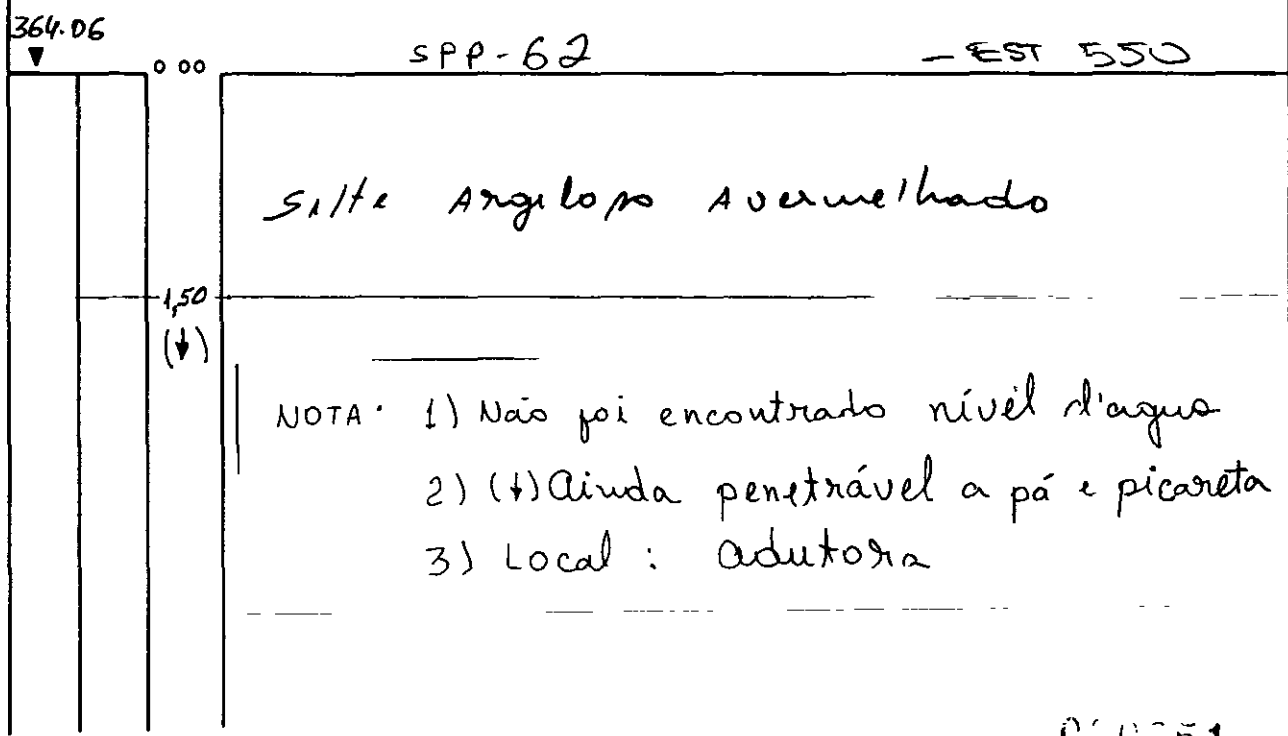 364.06
0 00 SPP-62 - EST 550
Silte Argiloso Avermelhado
1,50
(↓)
NOTA· 1) Não foi encontrado nível d'agua
2) (↓) Ainda penetrável a pá e picareta
3) Local : adutora